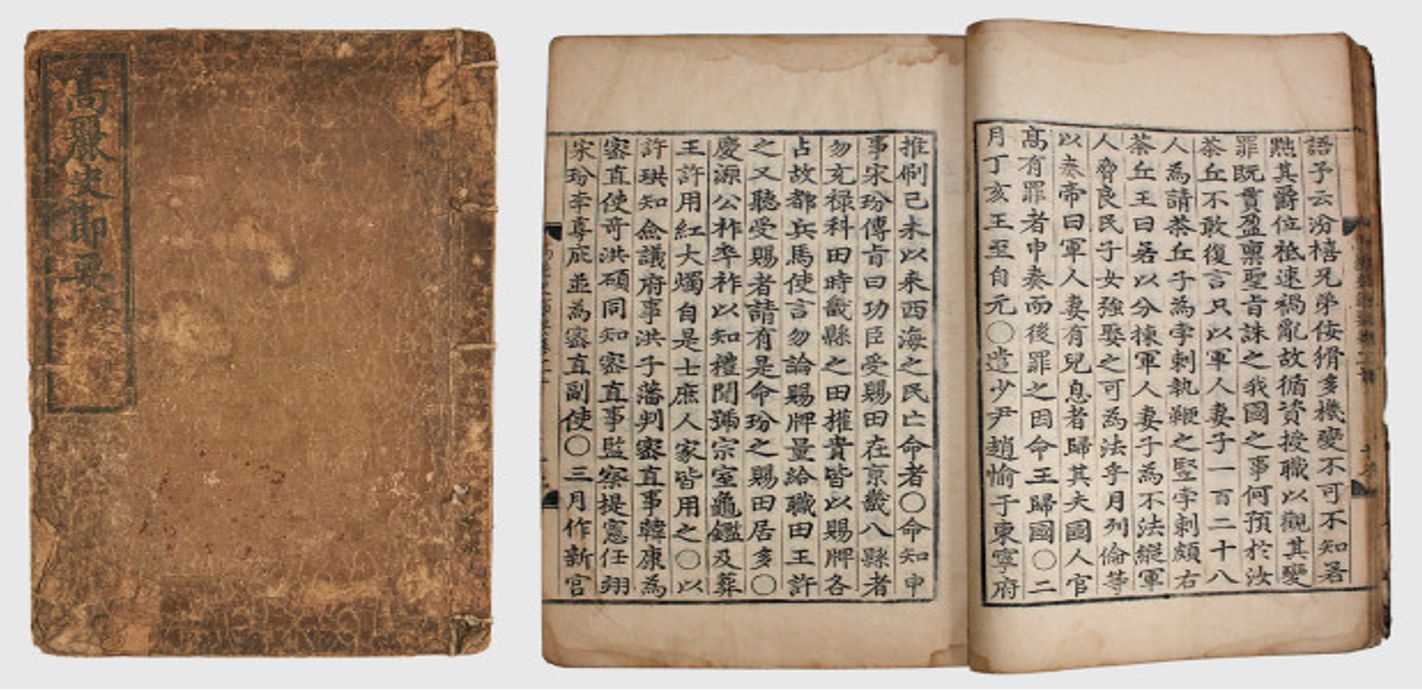 高麗史節要
語予云汾禧兄弟佞猾多機變不可不知若
黜其爵位祗速禍亂故循資授職以觀其變
罪既貫盈禀聖旨誅之我國之事何預於汝
茶丘不敢復言只以軍人妻子一百二十八
人為請茶丘子為孛剌執鞭之竪孛剌頗右
茶丘王曰君以分揀軍人妻子為不法縱軍
人脅良民子女強娶之可為法乎月列倫等
以奏帝曰軍人妻有兒息者歸其夫國人官
高有罪者申奏而後罪之因命王歸國〇二
月丁亥王至自元〇遣少尹趙愉于東寧府
推刷己未以来西海之民亡命者〇命知申
事宋玢傳旨曰功臣受賜田在京畿八縣者
勿充禄科田時畿縣之田權貴皆以賜牌各
占故都兵馬使言勿論賜牌量給職田王許
之又聽受賜者請有是命玢之賜田居多〇
慶源公祚卒祚以知禮聞號宗室龜鑑及葬
王許用紅大燭自是士庶人家皆用之〇以
許珙知僉議府事洪子藩判密直事韓康為
密直使奇洪碩同知密直事監察提憲任翊
宋玢李尊庇並為密直副使〇三月作新宮